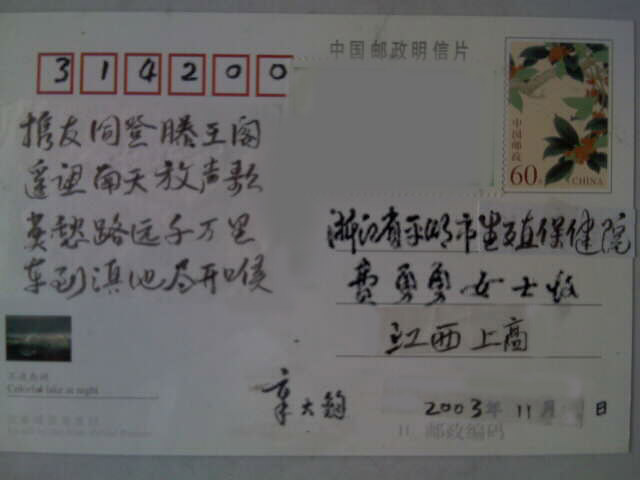 中国邮政明信片
314200
携友同登滕王阁
遥望南天放声歌
莫愁路远千万里
车到滇池局开喉
中国邮政
60分
CHINA
浙江省平湖市生殖保健院
费勇勇女士收
江西上高
Colorful lake at night
章大钧
2003年11月 日
邮政编码